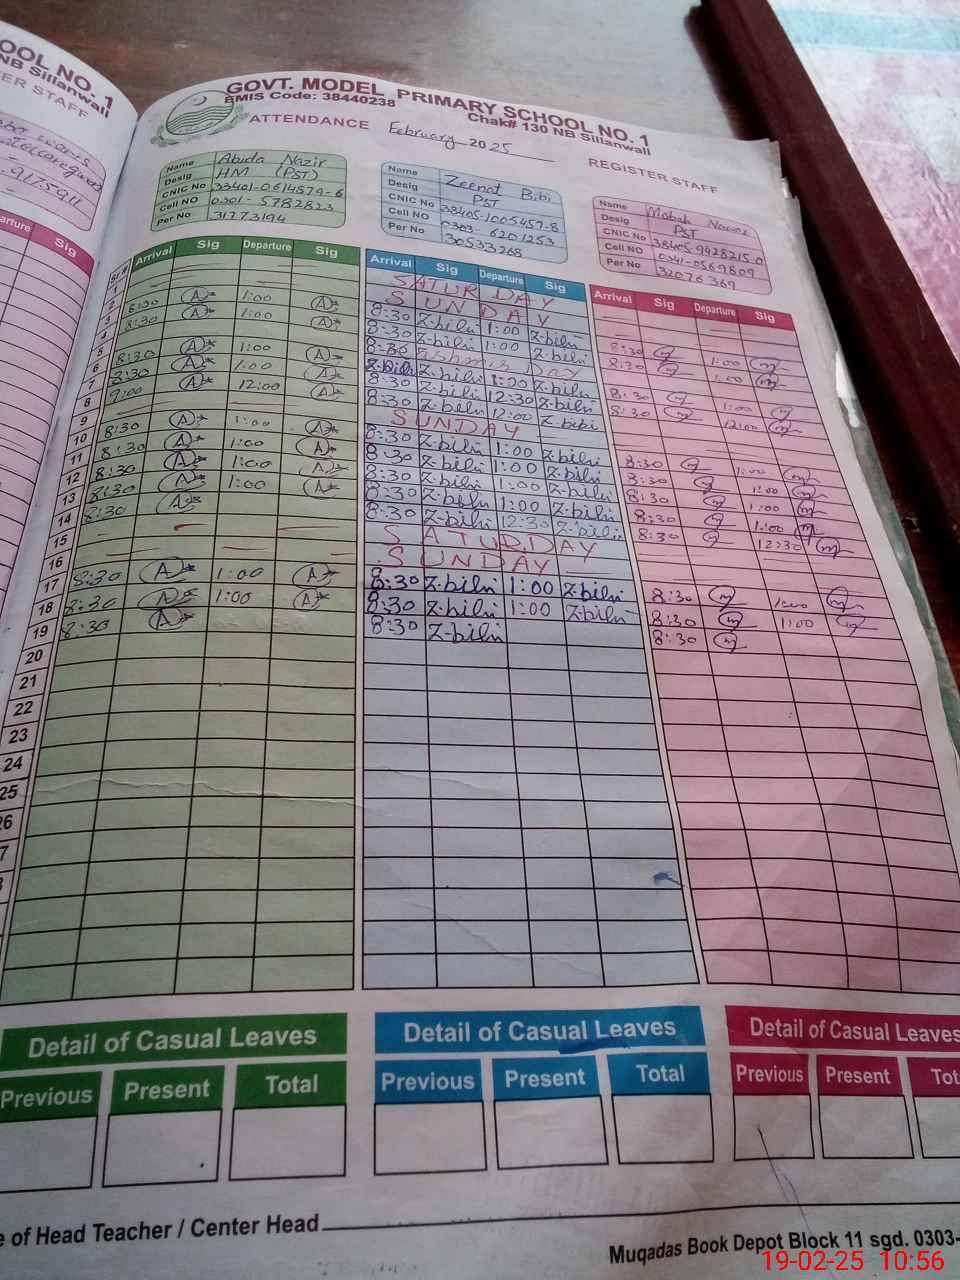 OOL NO. 1
NB Sillanwali
ER STAFF
GOVT. MODEL PRIMARY SCHOOL NO. 1
EMIS Code: 38440238
Chak# 130 NB Sillanwali
ATTENDANCE February 2025 REGISTER STAFF
Name Abida Nazir
Desig HM (PST)
CNIC No 33401-0614579-6
Cell NO 0301-5782823
Per No 31773194
Name Zeenat Bibi
Desig PST
CNIC No 38405-1005457-8
Cell NO 0303-6201253
Per No 30533268
Name Nawaz
Desig PST
CNIC No 38405-9428215-0
Cell NO 0341-0569809
Per No 32076369
arture Sig
Sr.# Arrival Sig Departure Sig Arrival Sig Departure Sig Arrival Sig Departure Sig
SATURDAY
2 SUNDAY
3 8:30 A 1:00 A 8:30 Z-bibi 1:00 Z-bibi 8:30 m 1:00 m
8:30 A 1:00 A 8:30 Z-bibi 1:00 Z-bibi 8:30 m 1:00 m
5 8:30 Kashmir Day
6 8:30 A 1:00 A Z-bibi 1:00 Z-bibi 8:30 m 1:00 m
7 8:30 A 1:00 A 8:30 Z-bibi 12:30 Z-bibi 8:30 m 12:00 m
8 9:00 A 12:00 A 8:30 Z-bibi 12:00 Z-bibi
9 SUNDAY
10 8:30 A 1:00 A 8:30 Z-bibi 1:00 Z-bibi 8:30 m 1:00 m
11 8:30 A 1:00 A 8:30 Z-bibi 1:00 Z-bibi 8:30 m 1:00 m
12 8:30 A 1:00 A 8:30 Z-bibi 1:00 Z-bibi 8:30 m 1:00 m
13 8:30 A 1:00 A 8:30 Z-bibi 1:00 Z-bibi 8:30 m 1:00 m
14 8:30 A 8:30 Z-bibi 12:30 Z-bibi 8:30 m 12:30 m
15 SATURDAY
16 SUNDAY
17 8:30 A 1:00 A 8:30 Z-bibi 1:00 Z-bibi 8:30 m 1:00 m
18 8:30 A 1:00 A 8:30 Z-bibi 1:00 Z-bibi 8:30 m 1:00 m
19 8:30 A 8:30 Z-bibi 8:30 m
20
21
22
23
24
25
26
7
Detail of Casual Leaves Detail of Casual Leaves Detail of Casual Leaves
Previous Present Total Previous Present Total Previous Present Tot
e of Head Teacher / Center Head
Muqadas Book Depot Block 11 sgd. 0303-
19-02-25 10:56